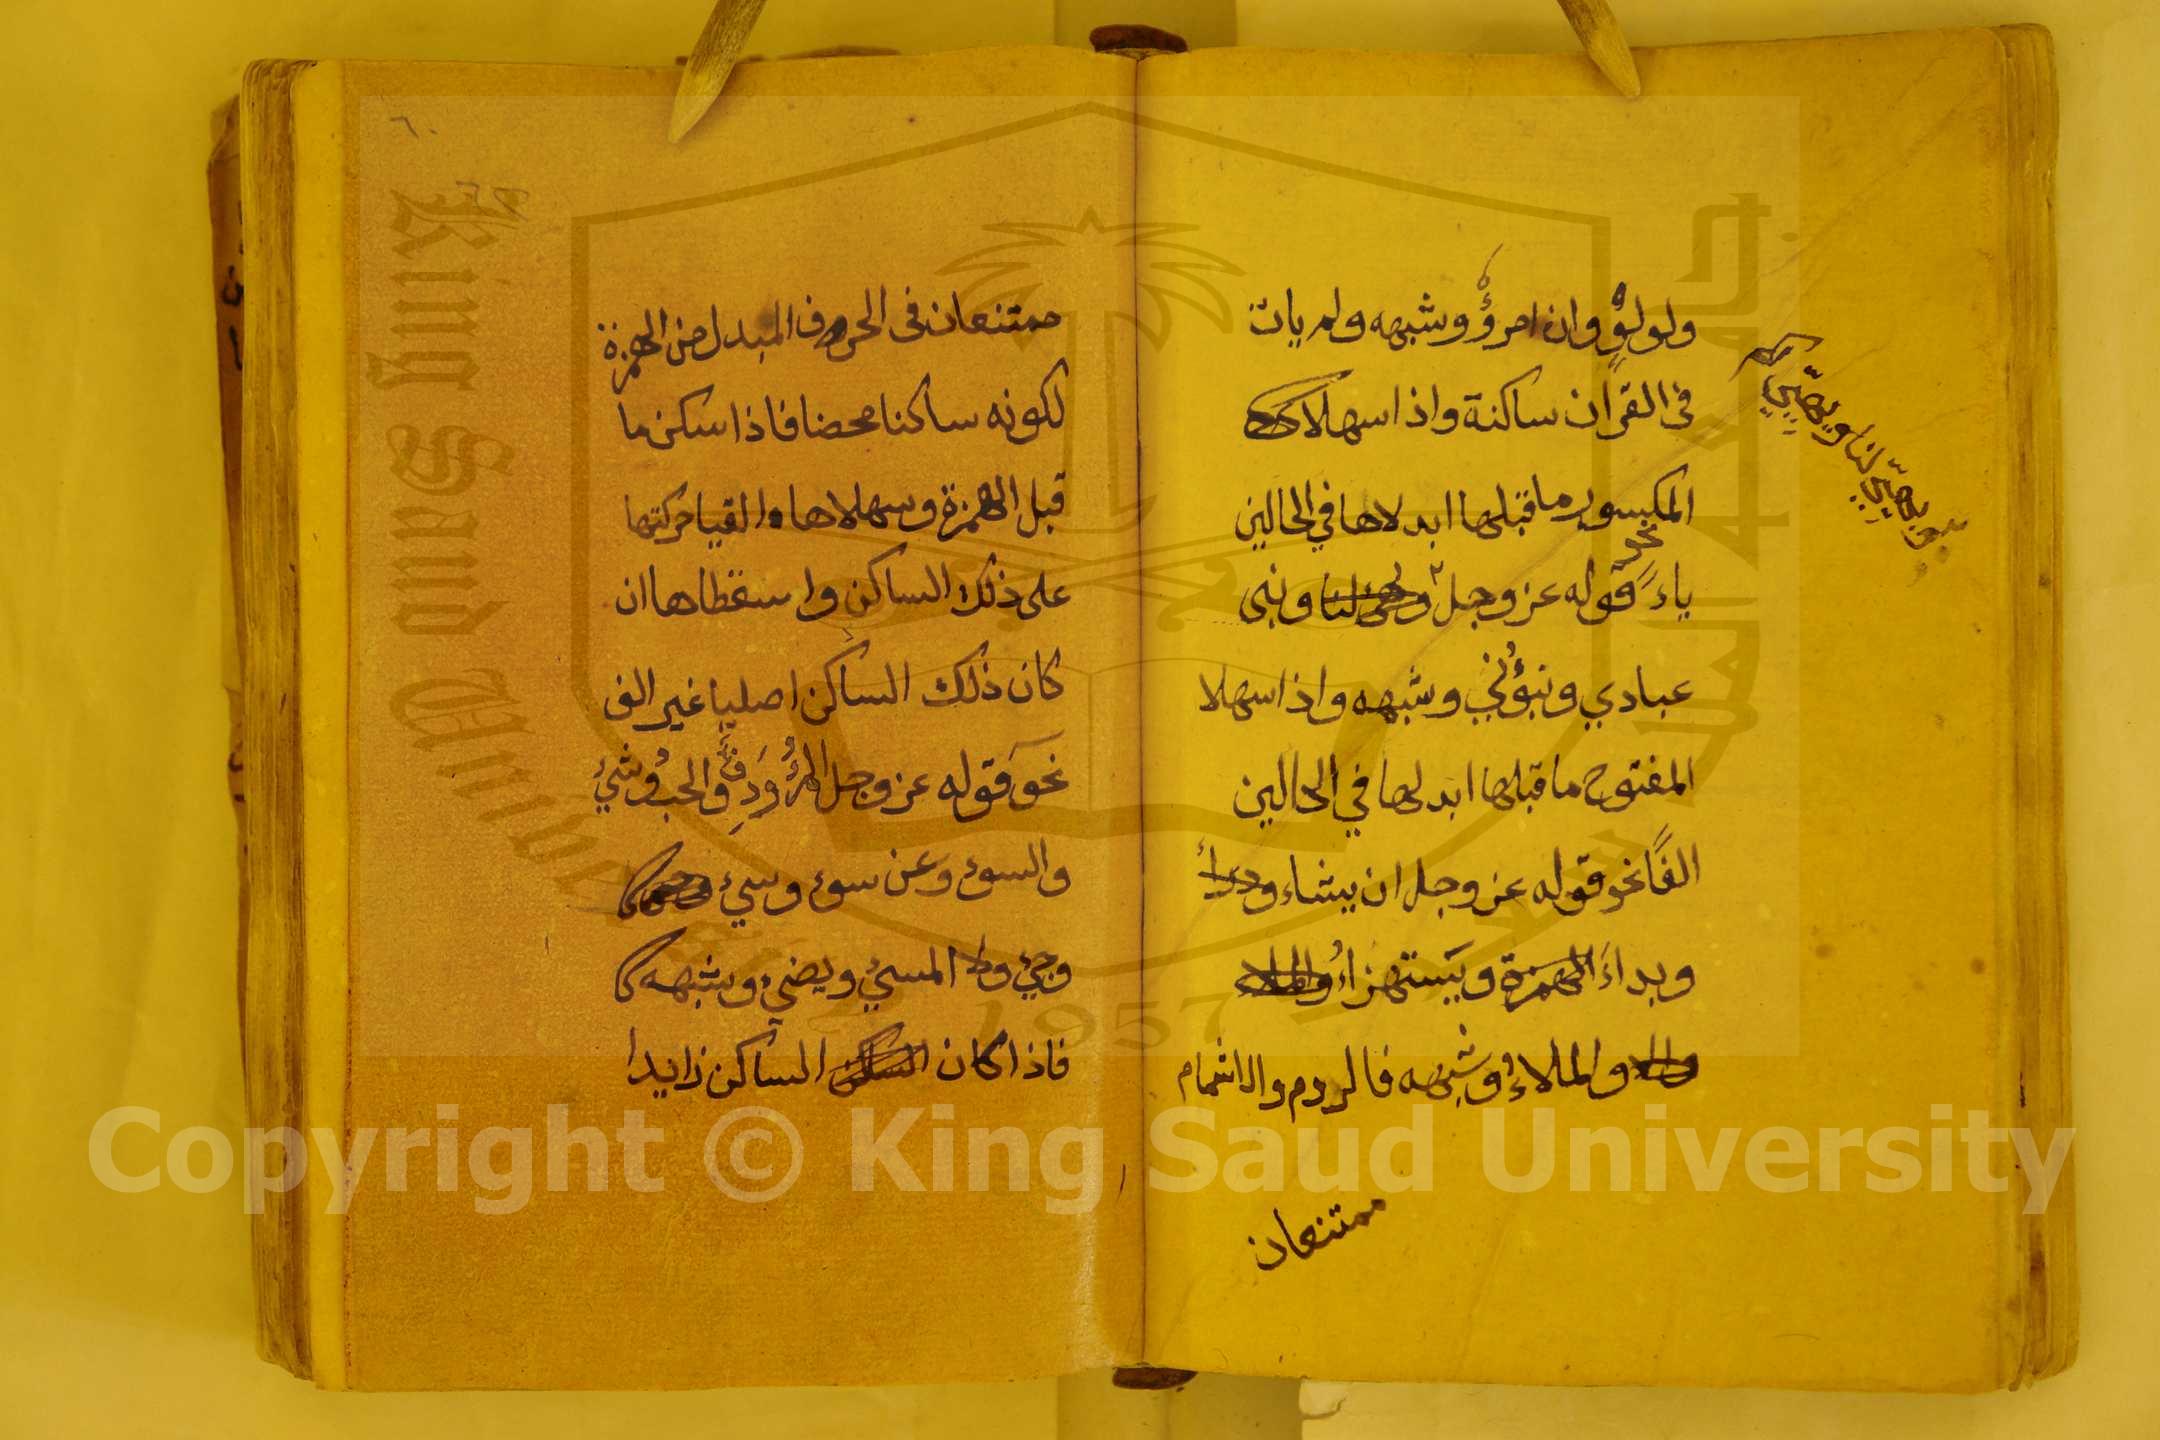 ولولؤٍ وان امرؤٌ وشبهه ولم يات
في القرآن ساكنة واذا سهلا
المكسور ما قبلها ابدلاها في الحالين
نحو
ياءً قوله عز وجل ونبي
عبادي ونبوئني وشبهه واذا سهلا
المفتوح ما قبلها ابدلها في الحالين
الفًا نحو قوله عز وجل ان يشاء
وبداءَ ويستهزاءُ
والملاءُ وشبهه فالروم والاشمام
ممتنعان
ويهيّئ لنا ويهيّئ
٦٠
ممتنعان في الحروف المبدل من الهمزة
لكونه ساكنا محضا فاذا سكن ما
قبل الهمزة وسهلاها والقيا حركتها
على ذلك الساكن واسقطاها ان
كان ذلك الساكن اصليا غير الف
نحو قوله عز وجل المرءُ ودفءٌ والخبءُ وشيءُ
والسوء وعن سوء وسيء
وجيء المسيءُ ويضيء وشبهه
فاذا كان الساكن زايدا
Copyright © King Saud University
King Saud University
جامعة الملك سعود
1957